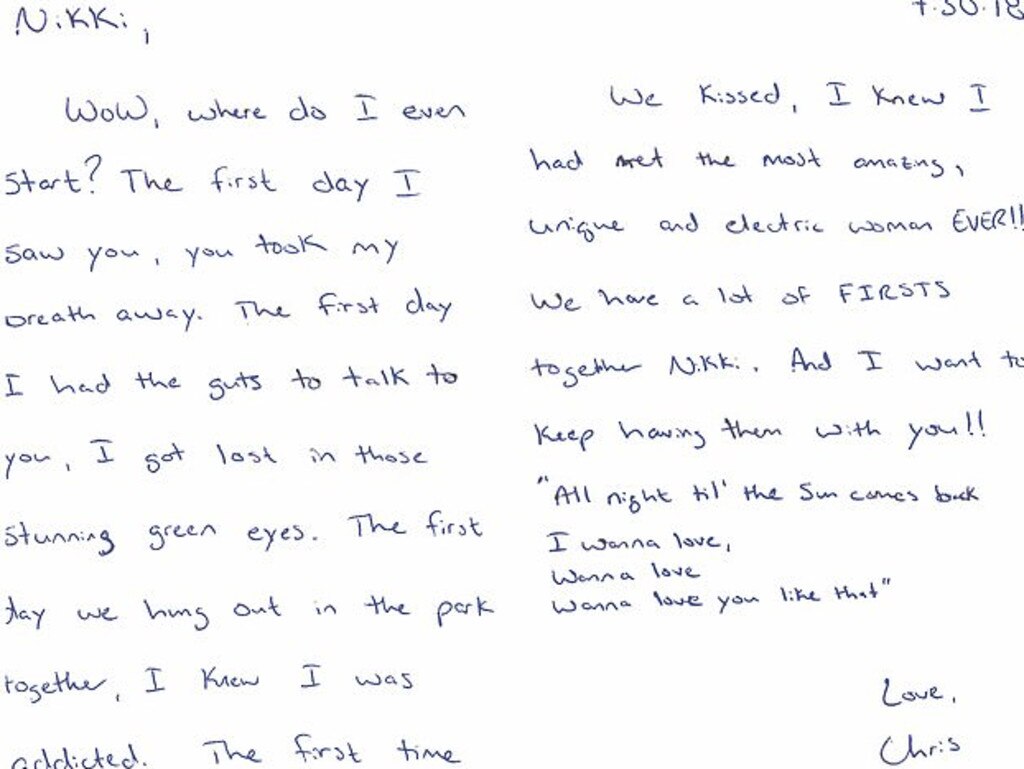 Nikki,
7.30.18
Wow, where do I even
start? The first day I
saw you, you took my
breath away. The first day
I had the guts to talk to
you, I got lost in those
stunning green eyes. The first
day we hung out in the park
together, I knew I was
addicted. The first time
We kissed, I knew I
had met the most amazing,
unique and electric woman EVER!!
We have a lot of FIRSTS
together Nikki. And I want to
keep having them with you!!
"All night til' the sun comes back
I wanna love,
Wanna love
Wanna love you like that"
Love,
Chris